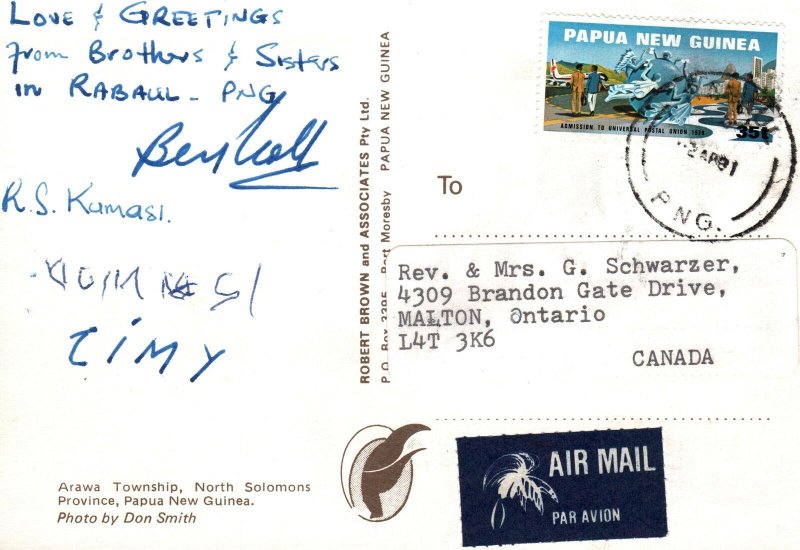 LOVE & GREETINGS
from Brothers & Sisters
in RABAUL - PNG
R.S. Kumasi.
TIMY
Arawa Township, North Solomons
Province, Papua New Guinea.
Photo by Don Smith
ROBERT BROWN and ASSOCIATES Pty Ltd.
P.O. Box 3395 Port Moresby PAPUA NEW GUINEA
PAPUA NEW GUINEA
ADMISSION TO UNIVERSAL POSTAL UNION 1976
35t
2 APR 81
P.N.G.
To
Rev. & Mrs. G. Schwarzer,
4309 Brandon Gate Drive,
MALTON, Ontario
L4T 3K6
CANADA
AIR MAIL
PAR AVION